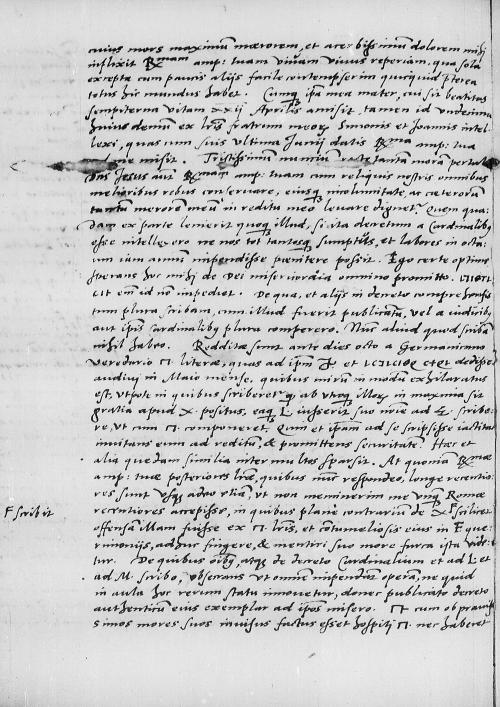 cuius mors maximum mœrorem, et acerbissimum dolorem mihi
inflixit R.mam amp: tuam vivam vivus reperiam. qua sola
excepta cum paucis alijs facile contempserim quicquid pterea
totus hic mundus habet. Cumq ipsa mea mater, cui sit beatitas
sempiterna vitam xxij Aprilis amisit, tamen id undecima
huius demum ex lris fratrum meorum Simonis et Joannis intel-
lexi, quas cum suis ultima Junij datis R.ma amp: tua
ad me misit. Tristissimum nuncium
Dns Jesus aut R.mam amp: tuam cum reliquis nostris omnibus
melioribus rebus conservare, eiusq incolumitate ac cæterorum
tantum merorem meum in reditu meo levare dignetur. Quem qua-
dam ex parte lenierit quoq illud, si ita decretum a Cardinalibq
esse intellexero ne nos tot tantosq sumptus, et labores in octa-
uum iam annum impendisse pœnitere possit. Ego certe optime
sperans hoc mihi de Dei misericordia omnino promitto.
cit em id no impediet. De qua, et alijs in decreto comprehensis
tum plura scribam, cum illud fuerit publicatum, vel a iudicibq
aut ipsis Cardinalibq plura comperero. Nunc aliud quod scribam
nihil habeo. Redditæ sunt ante dies octo a Germanicano
veredario literæ, quas ad ipsum et dedisse
audivi in Maio mense, quibus mirum in modum exhilaratus
est, utpote in quibus scriberetur ab utroq illorum in maxima sit
gratia apud X. positus, eaq L. inserit suo nomine ad scribe-
re, ut cum componeret. Quin et ipsam ad se scripsisse iactitat
invitans eum ad reditum, & promittens securitatem. Hæc et
alia quædam similia inter multos sparsit. At quoniam R.mæ
amp: tuæ posteriores lræ, quibus nunc respondeo, longe recentio-
res sunt usq adeo ut non meminerim me unq Romæ
recentiores accepisse, in quibus plane contrarium de X. F scilicet
F scribit
offensam illam fuisse ex lris, et contumeliosis eius in F quer-
rimonijs, adhuc fingere, & mentiri suo more furca ista vide-
tur. De quibus oibq, atq de decreto Cardinalium et ad L. et
ad M. scribo, obsecrans ut omnem impendat operam, ne quid
in aula hoc rerum statu innovetur, donec publicato decreto
authenticum eius exemplar ad ipsos misero. cum ob pravis-
simos mores suos invisus factus esset hospiti nec haberet